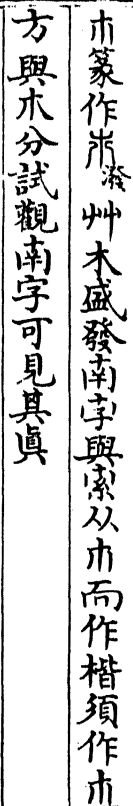 巿篆作𣎵潑艸木盛發南字與索从巿而作楷須作巿
方與木分試觀南字可見其眞